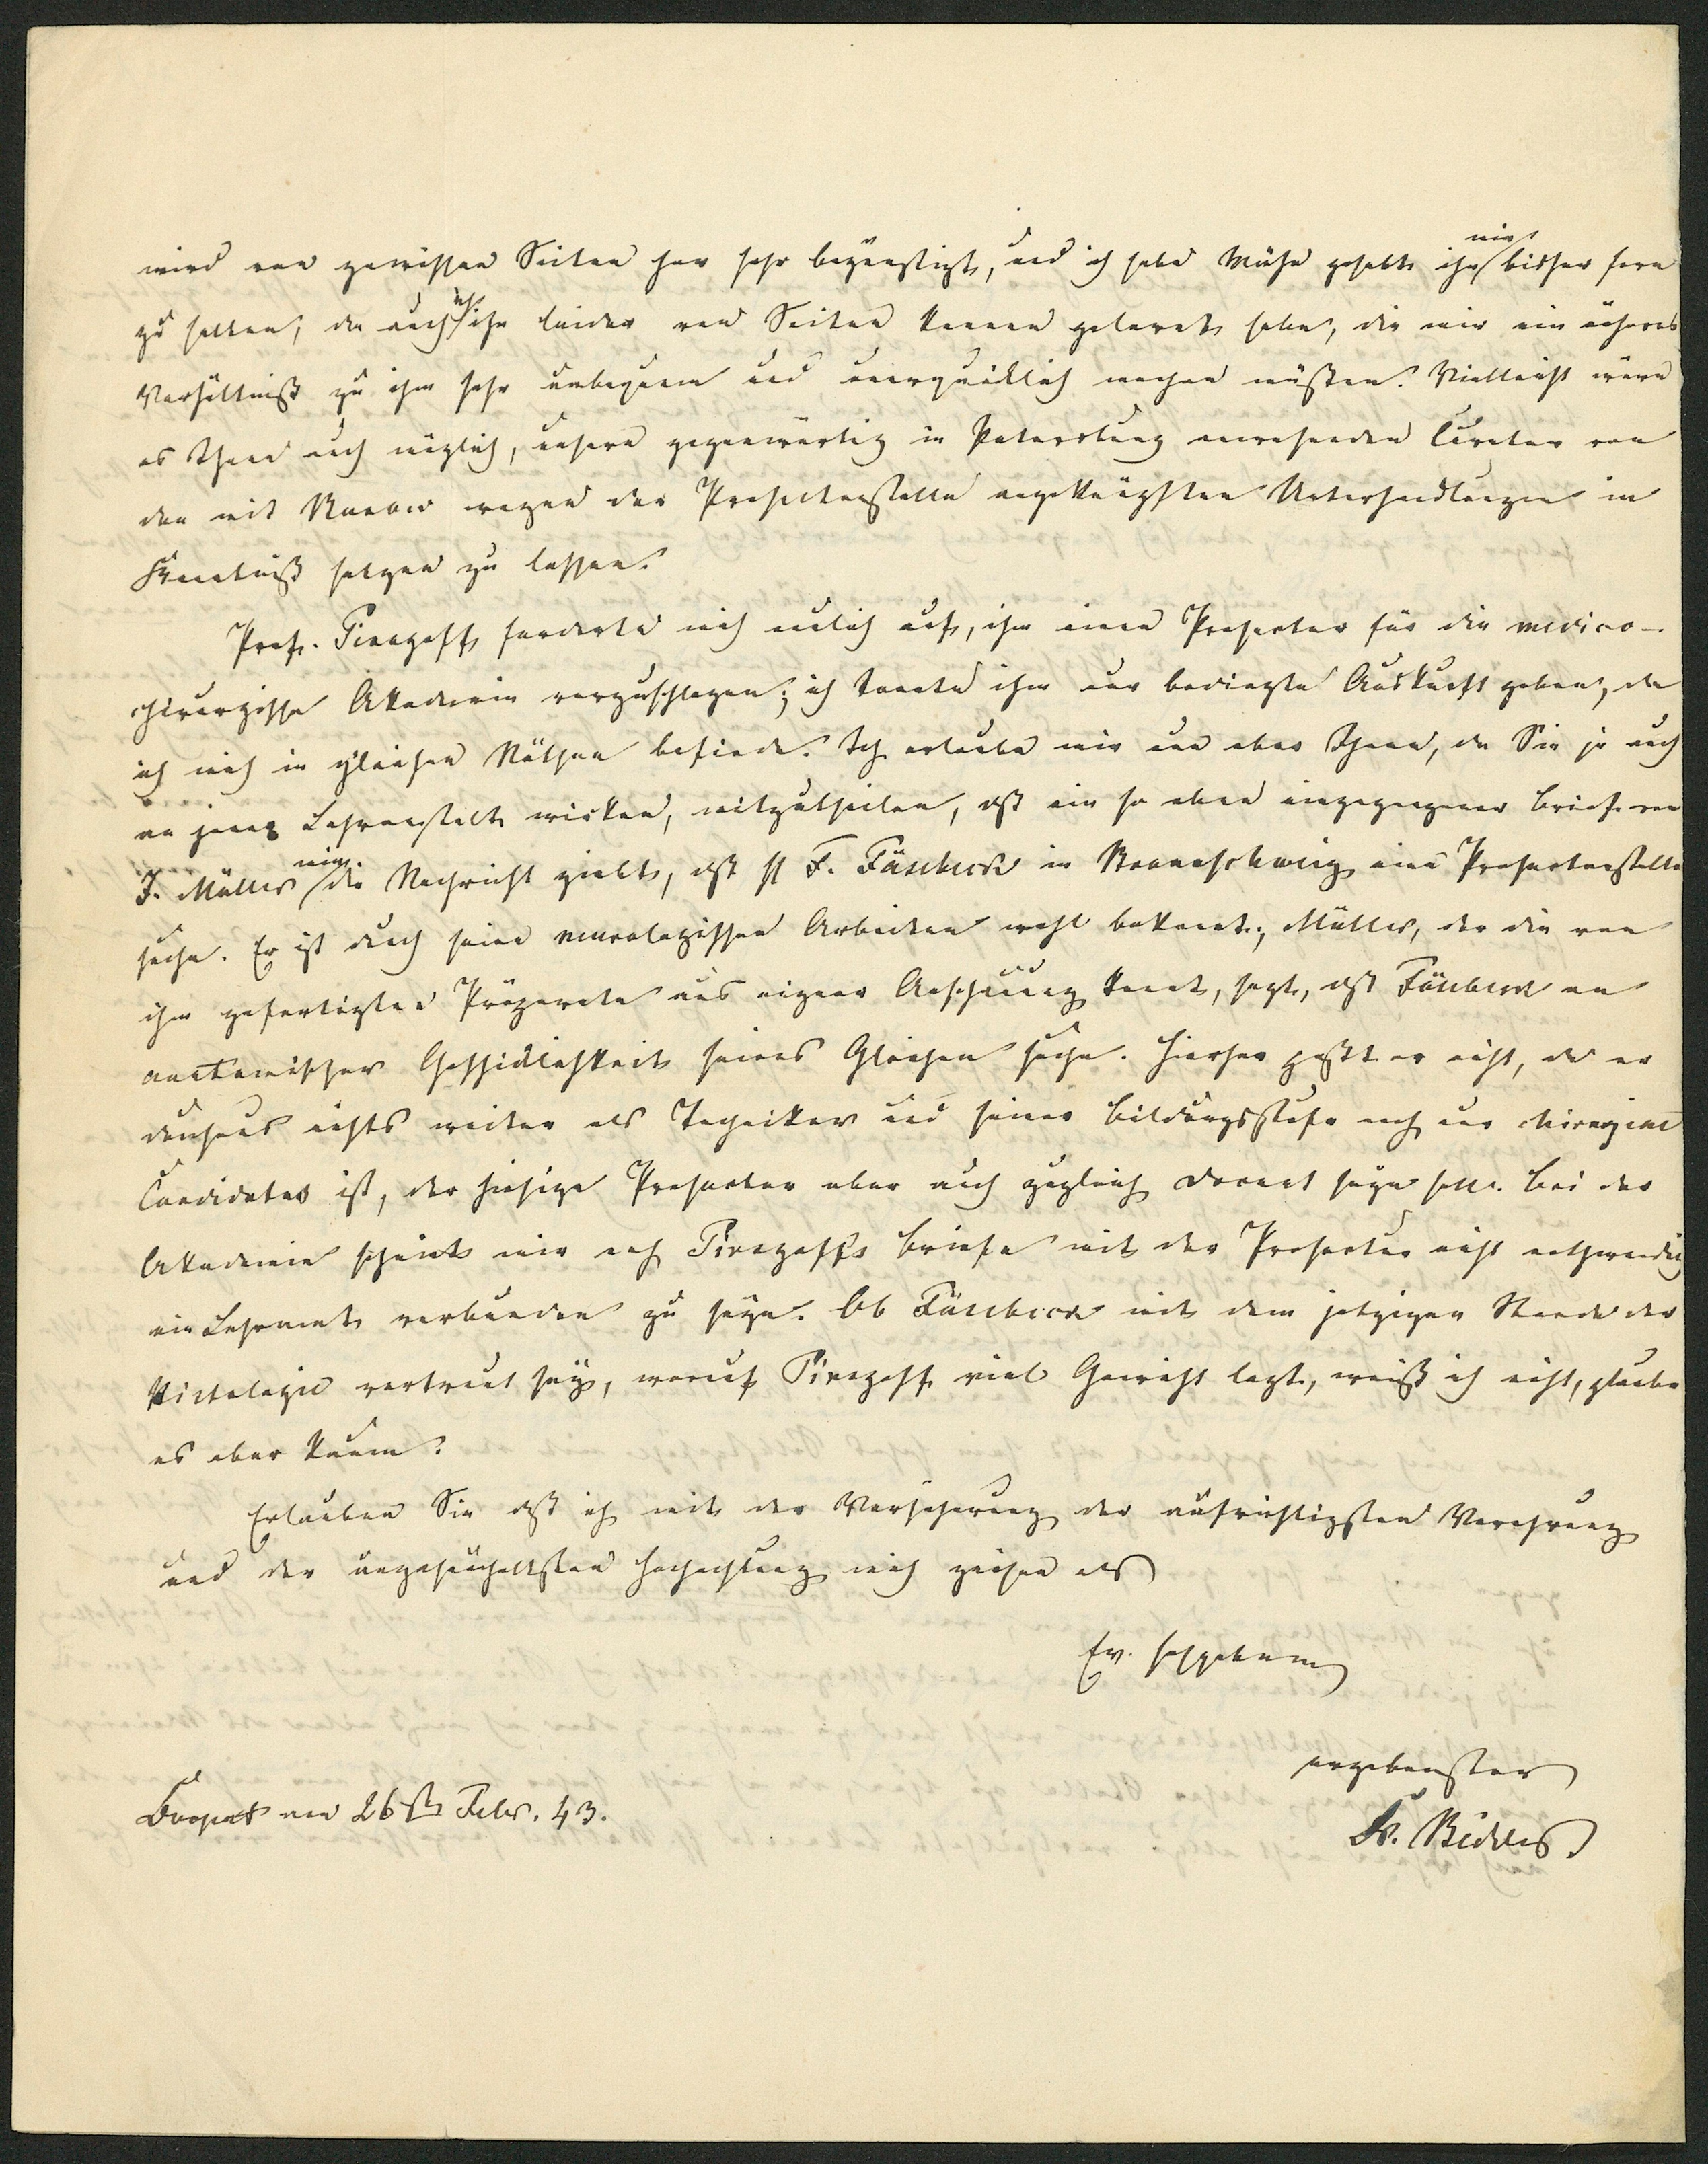 wird von gewissen Seiten her sehr begünstigt, und ich habe Mühe gehabt ihn mir bisher fern
zu halten, da auch ich ihn leider von Seiten kennen gelernt habe, die mir ein näheres
Verhältniß zu ihm sehr unbequem und unerquicklich machen müßten. Vielleicht wäre
es Ihnen auch möglich, unsern gegenwärtig in Petersburg anwesenden Curator von
den mit wegen der Prosectorstelle angeknüpften Unterhandlungen in
Kenntniß setzen zu lassen.
Prof. Pirogoff forderte mich neulich auf, ihm einen Prosector für die medico-
chirurgische Akademie vorzuschlagen; ich konnte ihm nur bedingte Auskunft geben, da
ich mich in gleichen Nöthen befinde. Ich erlaube mir nun aber Ihnen, da Sie ja auch
an jener Lehranstalt wirken, mitzutheilen, daß ein so eben eingegangener Brief von
J. Müller mir die Nachricht giebt, daß H F. Fäsebeck in Braunschweig eine Prosectorstelle
suche. Er ist durch seine neurologischen Arbeiten wohl bekannt; Müller, der die von
ihm gefertigten Präparate aus eigner Anschauung kennt, sagt, daß Fäsebeck an
anatomischer Geschicklichkeit seines Gleichen suche. Hierher paßt er nicht, da er
durchaus nichts weiter als Techniker und seiner Bildungsstufe nach nur chirurgiae
Candidatus ist, der hiesige Prosector aber auch zugleich Docent seyn soll. Bei der
Akademie scheint mir nach Pirogoffs Briefe mit der Prosectur nicht nothwendig
ein Lehramt verbunden zu seyn. Ob Fäsebeck mit dem jetzigen Stande der
Histologie vertraut sey, worauf Pirogoff viel Gewicht legt, weiß ich nicht, glaube
es aber kaum.
Erlauben Sie daß ich mit der Versicherung der aufrichtigsten Verehrung
und der ungeheucheltsten Hochachtung mich zeichne als
Ew. Hochgeboren
ergebenster
Dr. Bidder
Dorpat den 26sten Febr. 43.